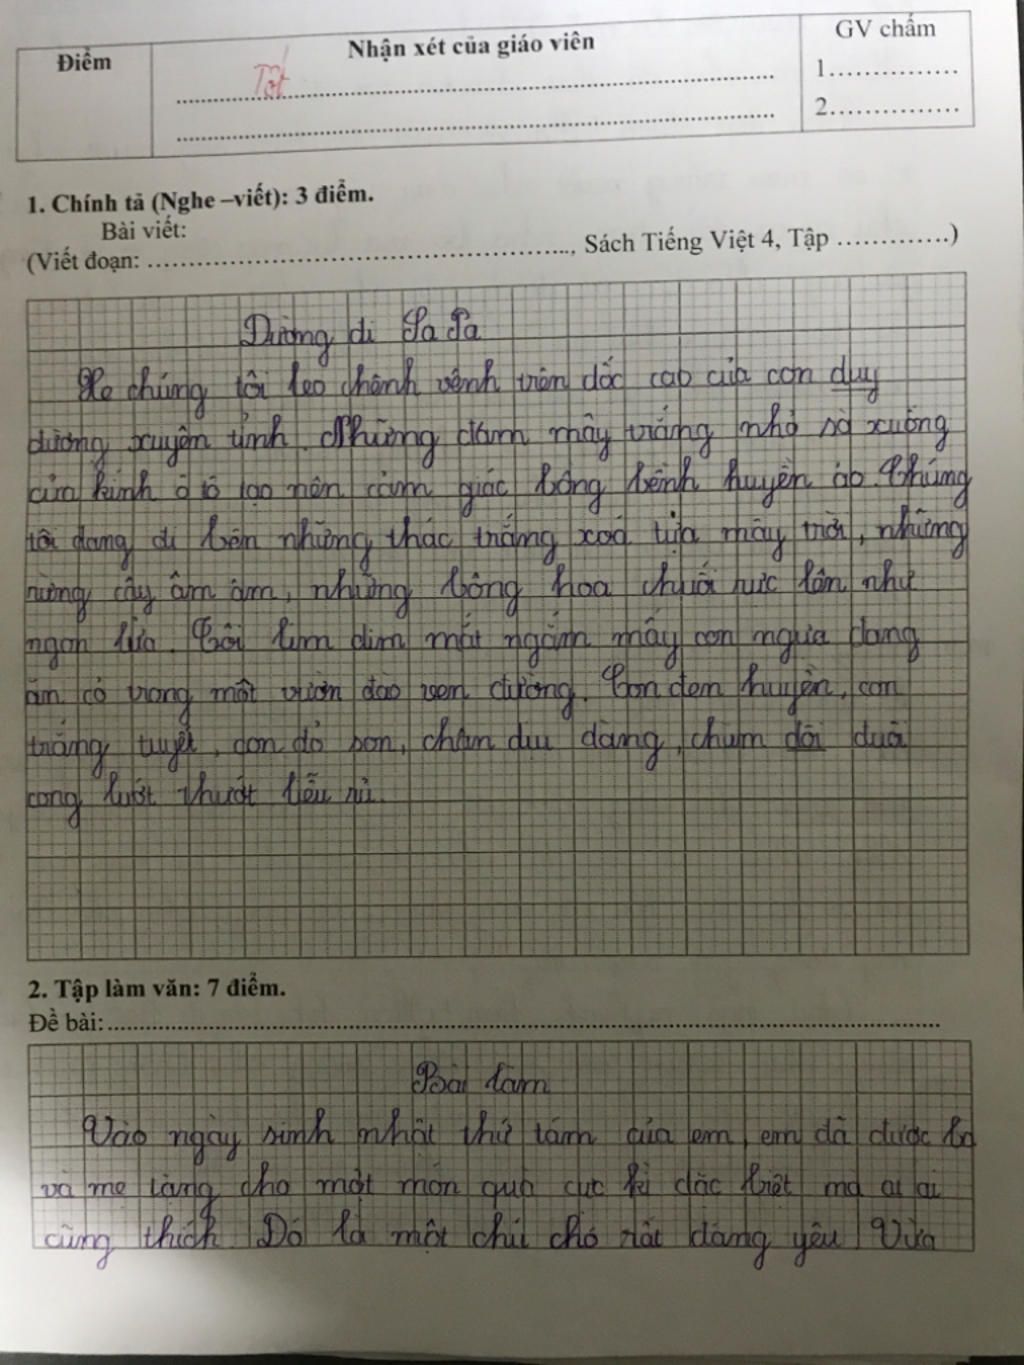 Điểm
Nhận xét của giáo viên
GV chấm
Tốt
1...............
2...............
1. Chính tả (Nghe –viết): 3 điểm.
Bài viết:
(Viết đoạn: ............................................................, Sách Tiếng Việt 4, Tập .............)
Đường đi Sa Pa
Xe chúng tôi leo chênh vênh trên dốc cao của con duy
đường xuyên tỉnh. Những đám mây trắng nhỏ sà xuống
cửa kính ô tô tạo nên cảm giác bồng bềnh huyền ảo. Chúng
tôi đang đi bên những thác trắng xoá tựa mây trời, những
rừng cây âm âm, những bông hoa chuối rực lên như
ngọn lửa. Tôi lim dim mắt ngắm mấy con ngựa đang
ăn cỏ trong một vườn đào ven đường. Con đen huyền, con
trắng tuyết, con đỏ son, chân dịu dàng, chùm dôi đuôi
cong lướt thướt liễu rủ.
2. Tập làm văn: 7 điểm.
Đề bài:............................................................
Bài làm
Vào ngày sinh nhật thứ tám của em, em đã được bố
và mẹ tặng cho một món quà cực kì đặc biệt mà ai ai
cũng thích. Đó là một chú chó rất đáng yêu. Vừa